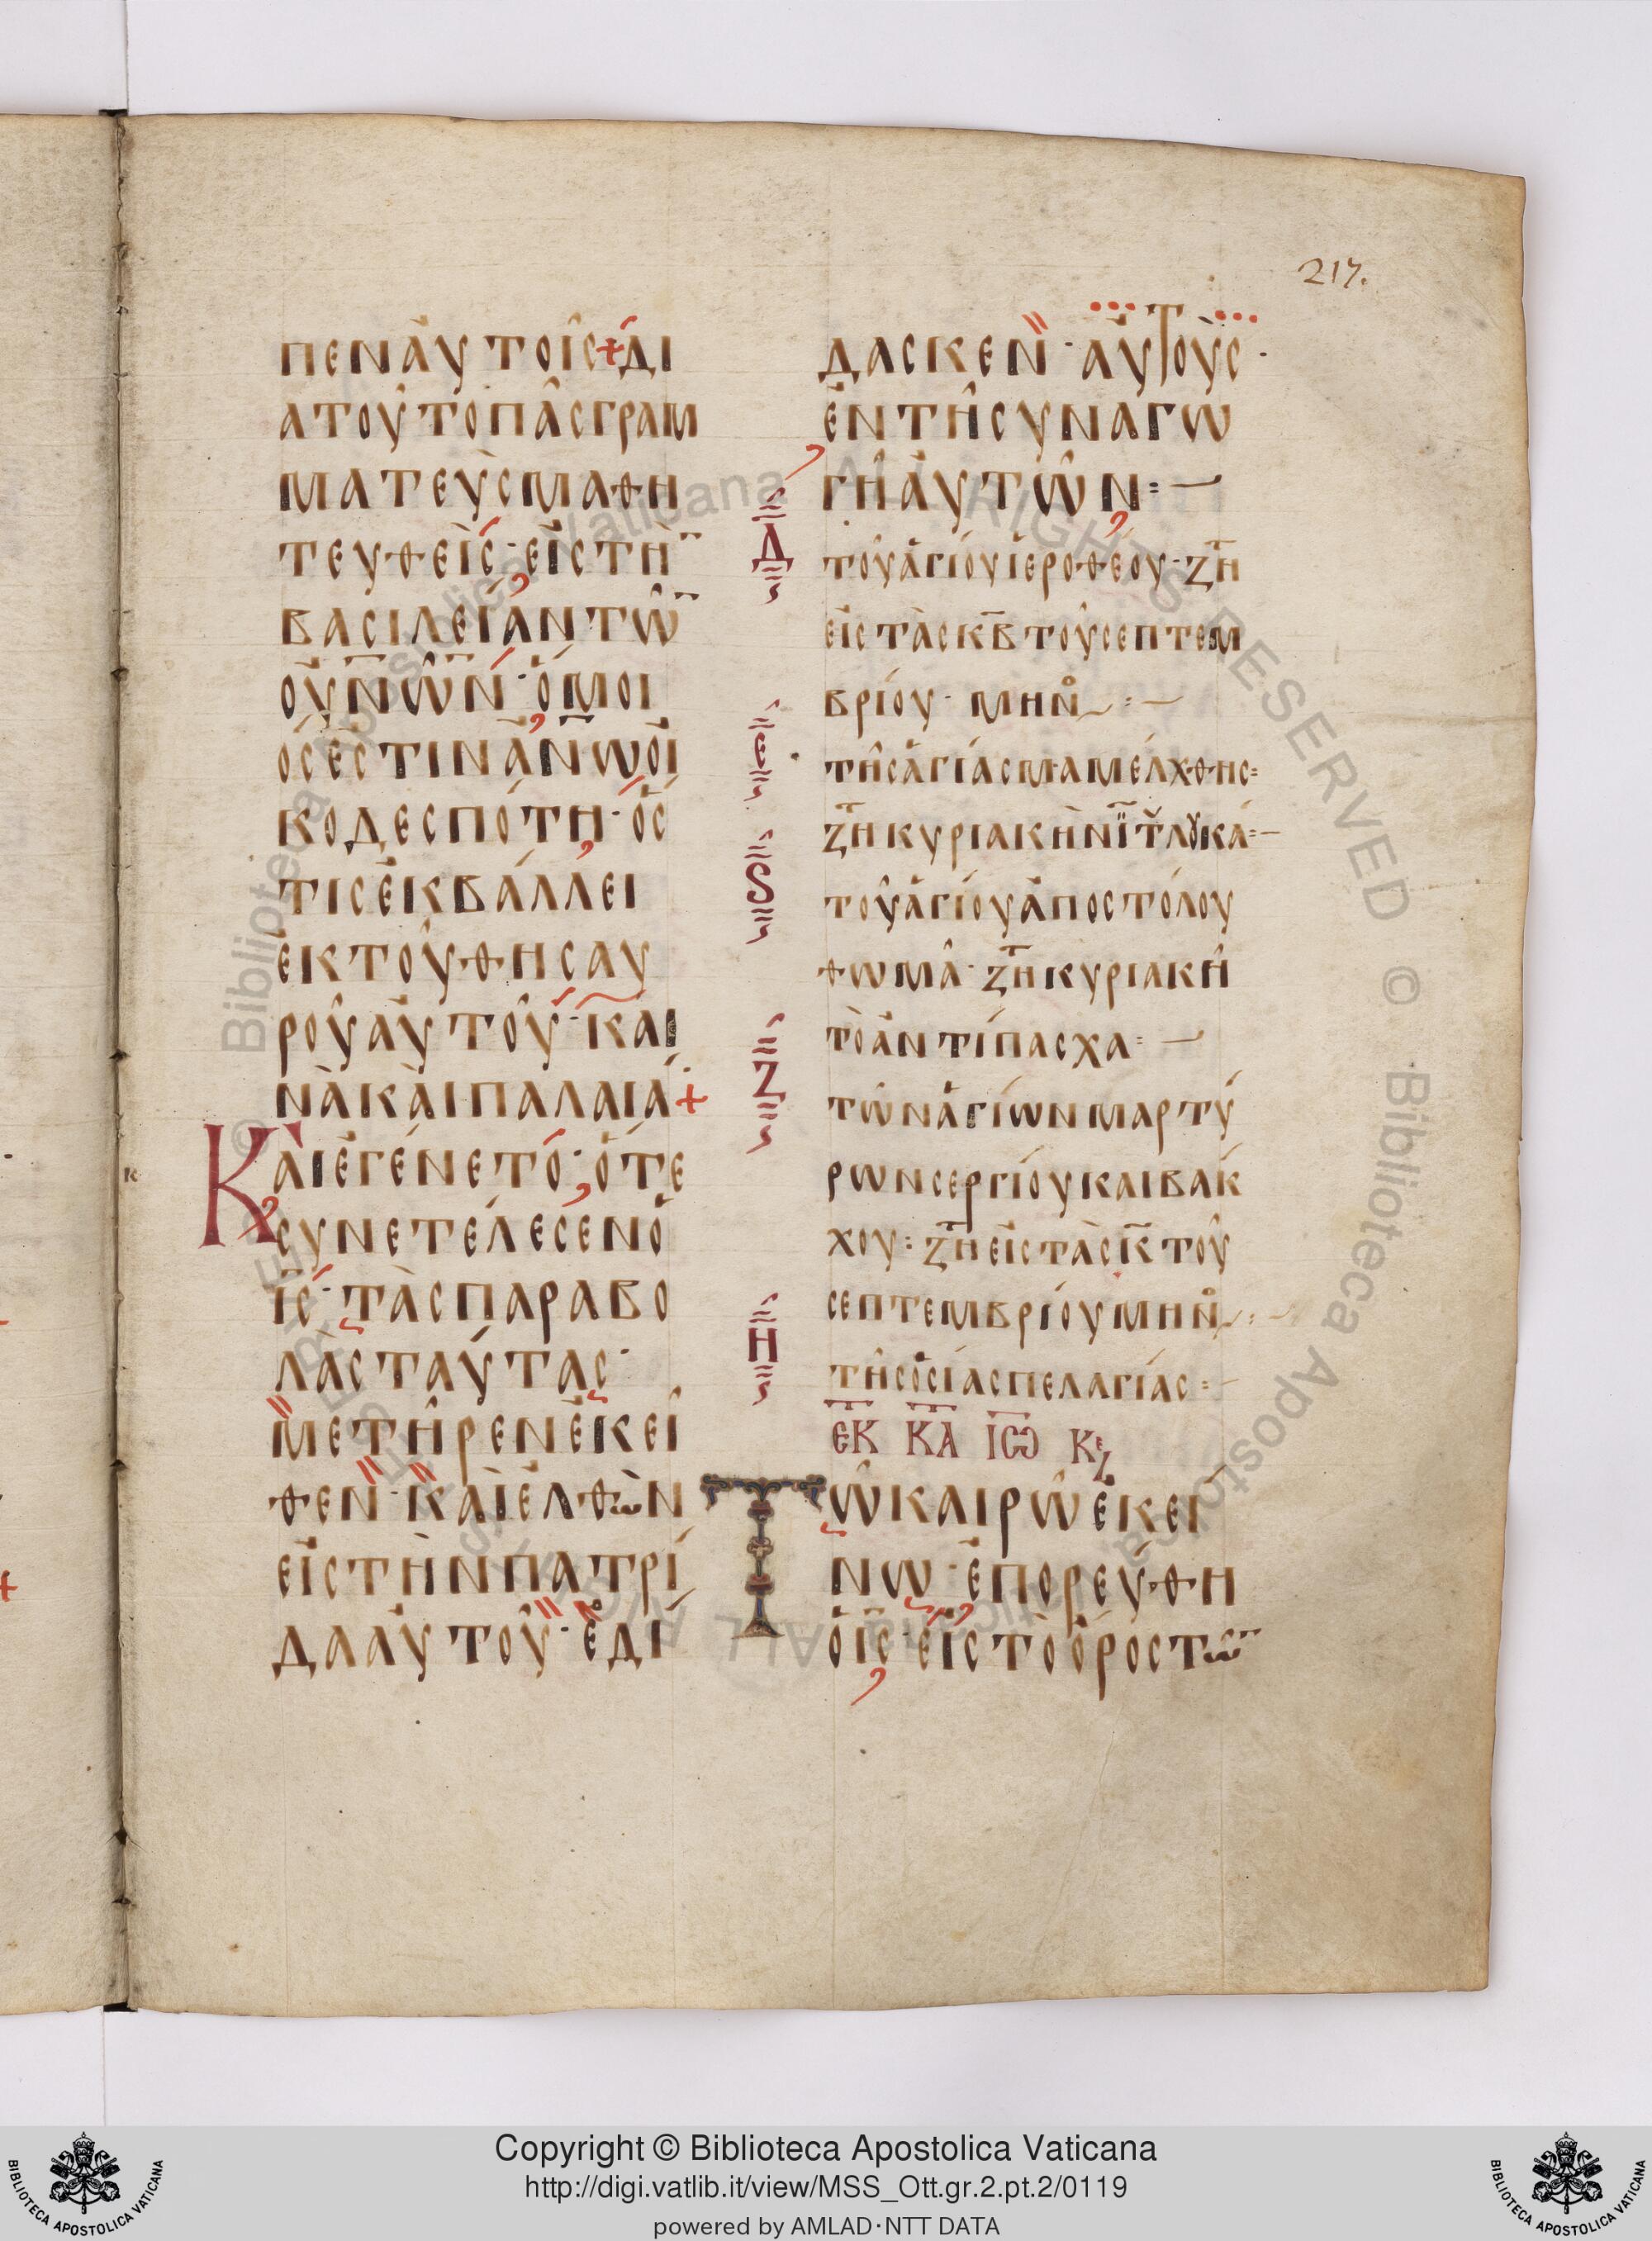 217.
πεν αὐτοῖς + δι
ὰ τοῦτο πᾶς γραμ
ματεὺς μαθη
τευθεὶς· εἰς τὴ̅
βασιλείαν τῶ̅
ου̅νω̅ν· ὅμοι
ός ἐστιν ἀν̅ω̅ οἰ
κοδεσπότη· ὅς
τις ἐκβάλλει
ἐκ τοῦ θησαυ
ροῦ αὐτοῦ· και
νὰ καὶ παλαιά +
Καὶ ἐγένετό· ὅτε
συνετέλεσεν ὁ
ι̅ς̅· τὰς παραβο
λὰς ταύτας·
μετῆρεν ἐκεῖ
θεν· κ̀αὶ ἐλθὼν
εἰς τὴν πατρί
δα αὐτοῦ· ἐδί
δασκεν· αὐτοὺς·
ἐν τῇ συναγω
γῇ αὐτῶν:—
Δ
τοῦ ἁγίου ἱεροθέου· ζη
εἰς τὰς κ̅β̅ τοῦ σεπτεμ
βρίου· μην:—
Ε
τῆς ἁγίας μαμέλχθης:
ζη κυριακὴν ι̅ τ λουκᾶ:—
Ϛ
τοῦ ἁγίου ἀποστόλου
θωμᾶ· ζη κυριακῆ
τὸ ἀντίπασχα:—
Ζ
τῶν ἁγίων μαρτύ
ρων σεργίου καὶ βάκ
χου: ζη εἰς τὰς κ̅ τοῦ
σεπτεμβρίου μην:—
Η
τῆς ὁσίας πελαγίας:—
ΕΚ ΚΑ ΙΩ ΚΕ
Τῶ καιρῶ ἐκεί
νω· ἐπορεύθη
ὁ ι̅ς̅· εἰς τὸ ὄρος τῶ̅
Copyright © Biblioteca Apostolica Vaticana
http://digi.vatlib.it/view/MSS_Ott.gr.2.pt.2/0119
powered by AMLAD·NTT DATA
BIBLIOTECA APOSTOLICA VATICANA
BIBLIOTECA APOSTOLICA VATICANA